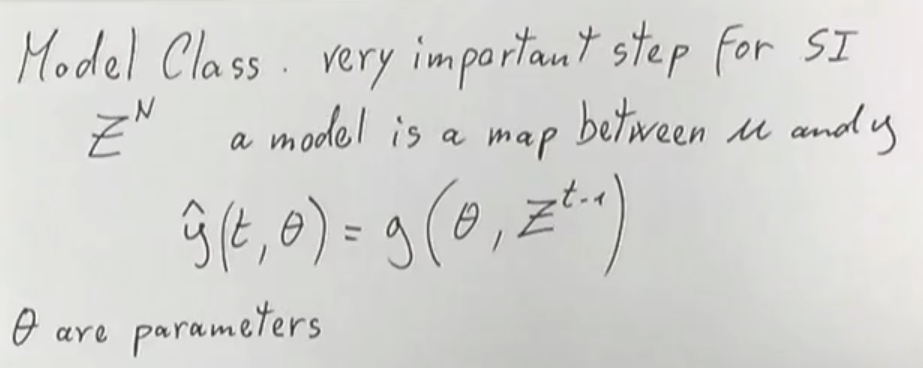 Model Class. very important step for SI
Z^N a model is a map between u and y
ŷ(t, θ) = g(θ, Z^{t-1})
θ are parameters